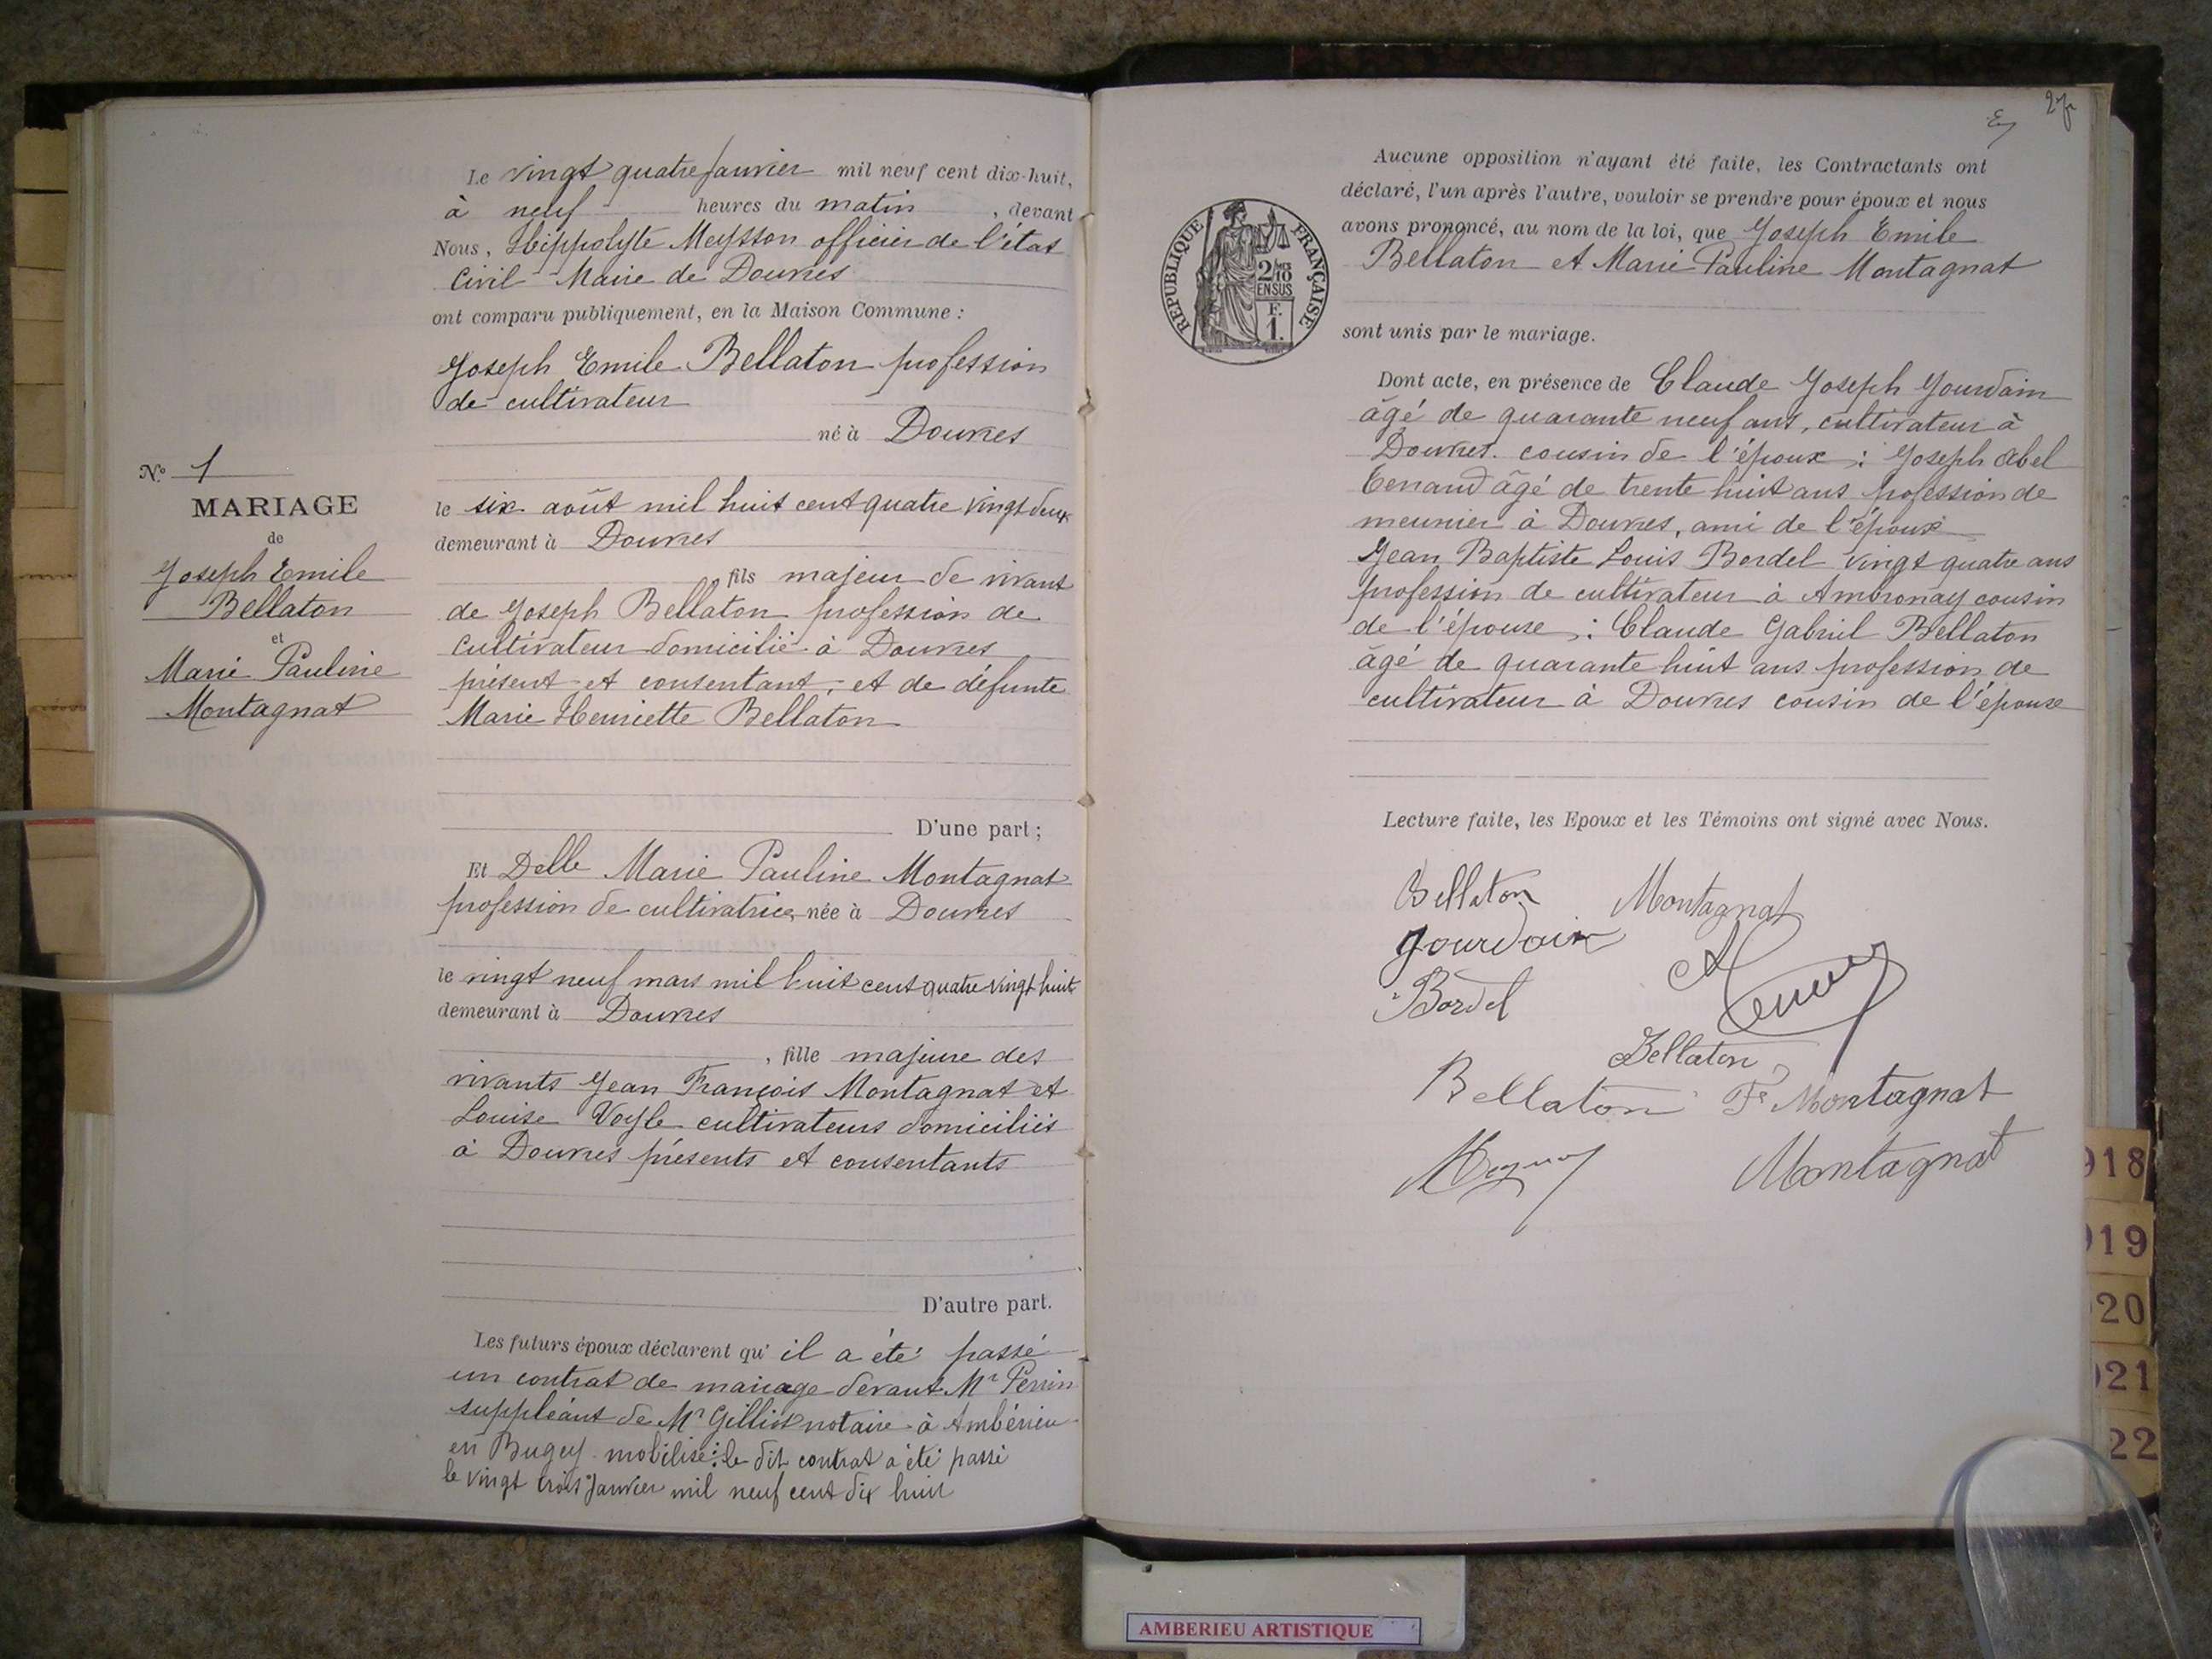 Le vingt quatre Janvier mil neuf cent dix-huit,
à neuf heures du matin, devant
Nous, Hippolyte Meysson officier de l'état
Civil Maire de Douvres
ont comparu publiquement, en la Maison Commune :
Joseph Emile Bellaton profession
de cultivateur
né à Douvres
le six août mil huit cent quatre vingt deux
demeurant à Douvres
, fils majeur de vivant
de Joseph Bellaton profession de
cultivateur domicilié à Douvres
présent et consentant ; et de défunte
Marie Henriette Bellaton
D'une part ;
N° 1
MARIAGE
de
Joseph Emile
Bellaton
et
Marie Pauline
Montagnat
Et Delle Marie Pauline Montagnat
profession de cultivatrice, née à Douvres
le vingt neuf mars mil huit cent quatre vingt huit
demeurant à Douvres
, fille majeure des
vivants Jean François Montagnat et
Louise Voyle cultivateurs domiciliés
à Douvres présents et consentants
D'autre part.
Les futurs époux déclarent qu'il a été passé
un contrat de mariage devant Mr Perrin
suppléant de Mr notaire à Ambérieu
en Bugey mobilisé : le dit contrat a été passé
le vingt trois Janvier mil neuf cent dix huit
Aucune opposition n'ayant été faite, les Contractants ont
déclaré, l'un après l'autre, vouloir se prendre pour époux et nous
avons prononcé, au nom de la loi, que Joseph Emile
Bellaton et Marie Pauline Montagnat
sont unis par le mariage.
RÉPUBLIQUE FRANÇAISE
2/10
EN SUS
F.
1.
Dont acte, en présence de Claude Joseph Jourdain
âgé de quarante neuf ans, cultivateur à
Douvres. cousin de l'époux ; Joseph Abel
Tenand âgé de trente huit ans profession de
meunier à Douvres, ami de l'époux
Jean Baptiste Louis Bordel vingt quatre ans
profession de cultivateur à Ambronay cousin
de l'épouse ; Claude Gabriel Bellaton
âgé de quarante huit ans profession de
cultivateur à Douvres cousin de l'épouse
Lecture faite, les Epoux et les Témoins ont signé avec Nous.
Bellaton Montagnat
Jourdain
Bordel
Bellaton
Bellaton Fs Montagnat
Montagnat
918
919
920
921
922
AMBERIEU ARTISTIQUE